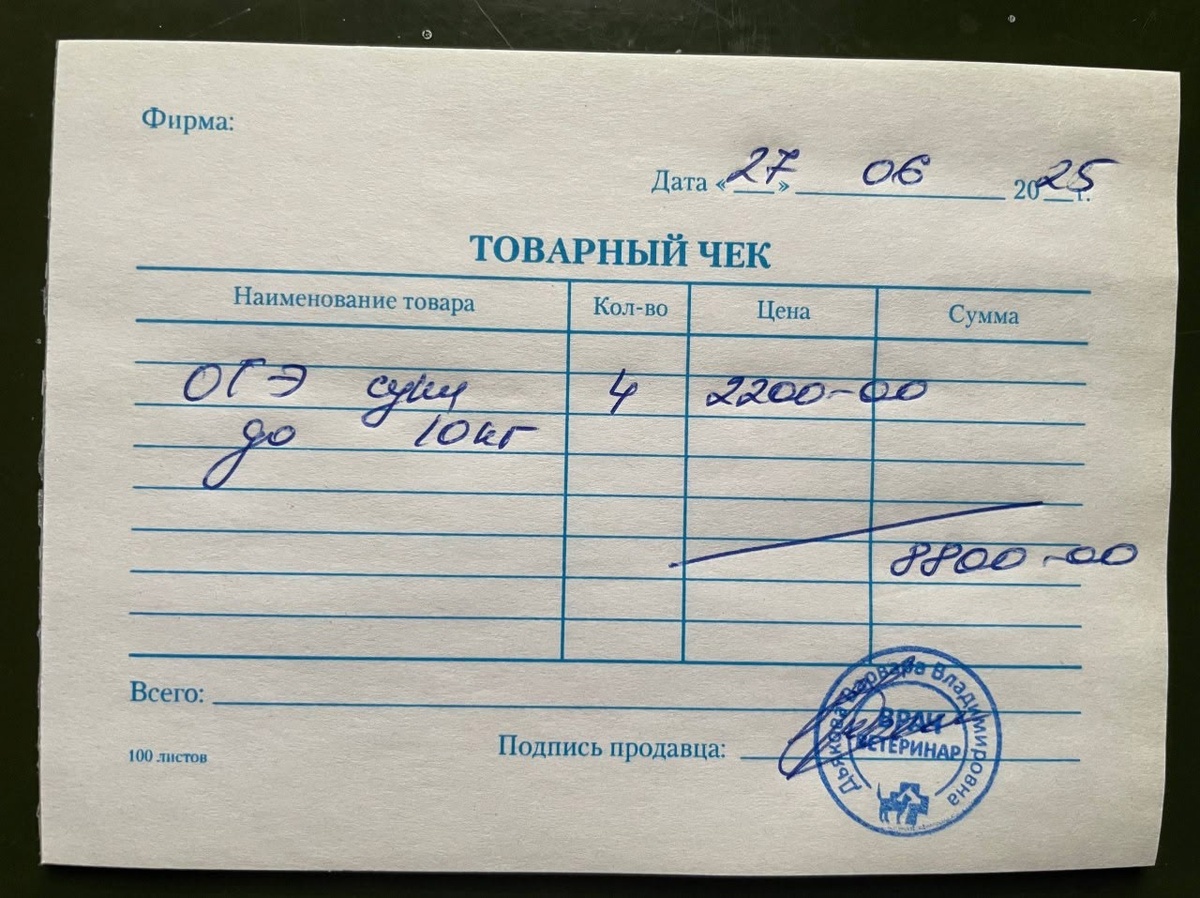 Фирма:
Дата «27» 06 2025 г.
ТОВАРНЫЙ ЧЕК
Наименование товара Кол-во Цена Сумма
ОГЭ суки 4 2200-00
до 10кг
8800-00
Всего:
Подпись продавца:
100 листов
Дьякова Варвара Владимировна
ВРАЧ
ВЕТЕРИНАР